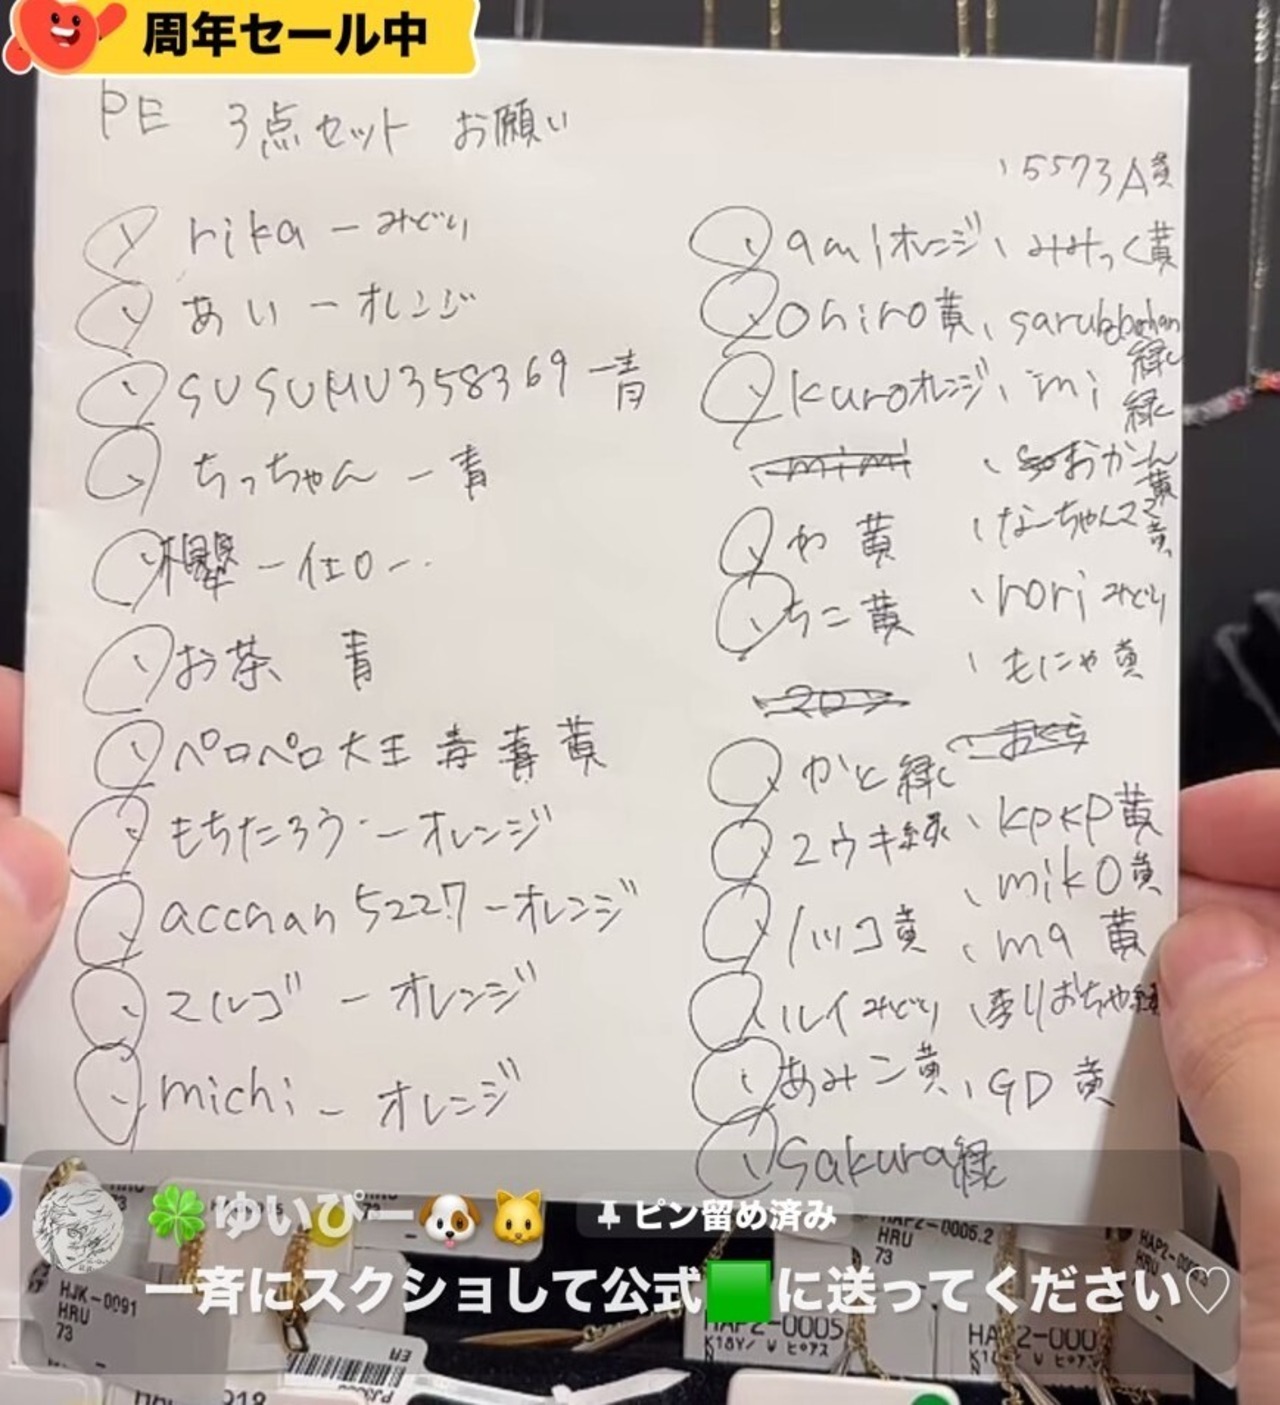 周年セール中
PE 3点セット お願い
rika ー みどり
あい ー オレンジ
SUSUMU358369 ー青
ちっちゃん ー 青
櫻 ー イエロー
お茶 青
ペロペロ大王 青 青 黄
もちたろう ー オレンジ
acchan 5227 ー オレンジ
マルゴ ー オレンジ
michi ー オレンジ
、5573A黄
am1オレンジ、みみっく黄
ohiro黄、sarubobochan緑
kuroオレンジ、mi緑
mimi、おかん黄
か 黄、なーちゃんママ
ちこ 黄、noriみどり
、もにゃ黄
かと緑、おくら
ユウキ緑、kpkp黄
、miko黄
ハツコ黄、ma 黄
ルイみどり、おちゃ緑
あみこ黄、GD 黄
sakura緑
🍀ゆいぴー🐶🐱 ピン留め済み
一斉にスクショして公式🟩に送ってください♡
HJK-0091
HRU
73
HRU
73
HAP2-0005
K18Y/ W ピアス
HAP2-000